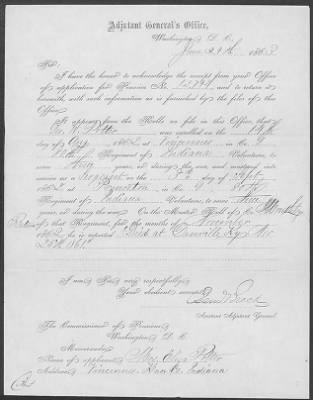 Adjutant General's Office,
Washington, D. C.
June 29th, 1863
Sir:
I have the honor to acknowledge the receipt from your Office
of application for Pension No. and to return it
herewith, with such information as is furnished by the files of this
Office.
It appears from the Rolls on file in this Office, that
Geo. W. Potter was enrolled on the 14th
day of Aug 1862 at Vincennes in Co. G
Regiment of Indiana Volunteers, to
serve years, or during the war, and mustered into
service as a Sergeant on the day of Sept
1862 at Princeton in Co. G 80th
Regiment of Indiana Volunteers, to serve
years, or during the war. On the Muster Roll of Co. G
of that Regiment, for the months of
1862 he is reported "Died at Danville Ky. Nov
25th 1862"
I am, Sir, very respectfully,
Your obedient servant,
Assistant Adjutant General.
The Commissioner of Pensions,
Washington, D. C.
Memoranda:
Name of applicant, Potter
Address, Vincennes Indiana